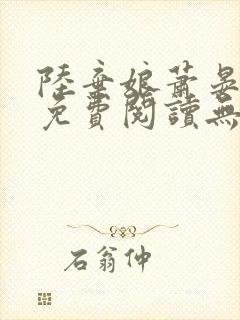 陸棄娘蕭晏
免費閱讀無
石翁仲